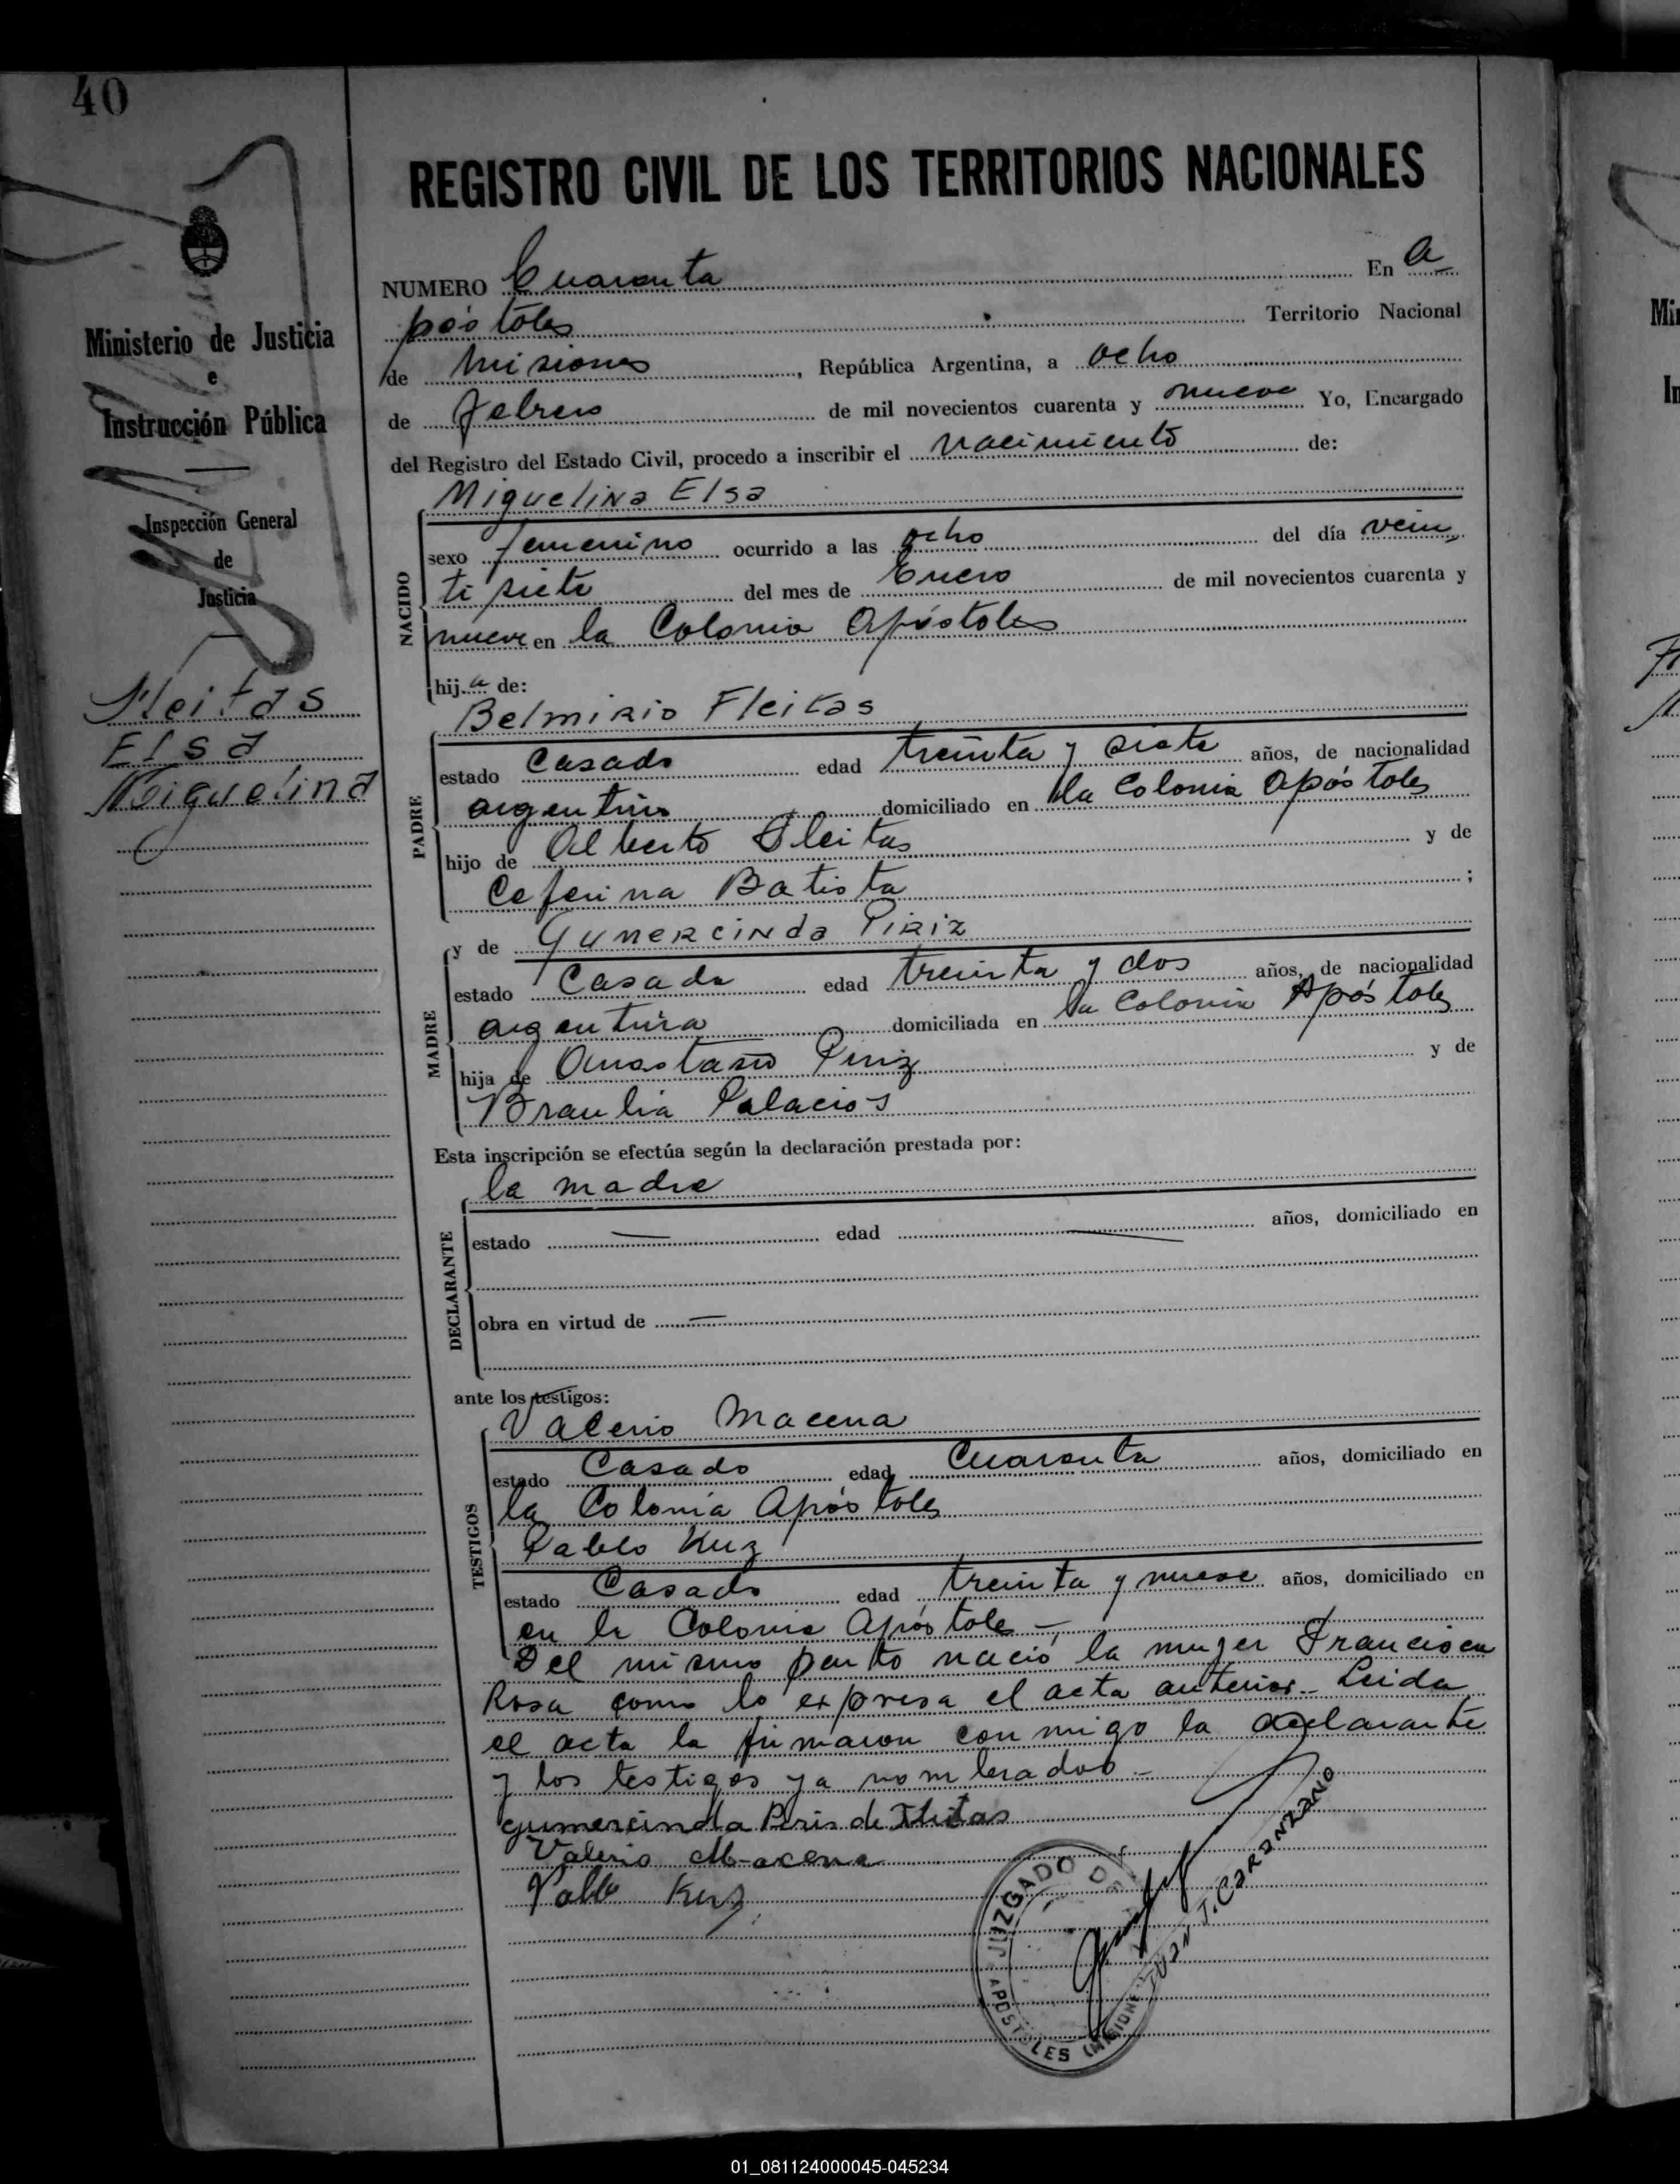 40
REGISTRO CIVIL DE LOS TERRITORIOS NACIONALES
Ministerio de Justicia
e
Instrucción Pública
Inspección General
de
Justicia
Fleitas
Elsa
Miguelina
NUMERO Cuarenta En A
póstoles Territorio Nacional
de Misiones, República Argentina, a ocho
de Febrero de mil novecientos cuarenta y nueve Yo, Encargado
del Registro del Estado Civil, procedo a inscribir el nacimiento de:
Miguelina Elsa
NACIDO
sexo femenino ocurrido a las ocho del día vein
ti siete del mes de Enero de mil novecientos cuarenta y
nueve en la Colonia Apóstoles
hija de:
Belmirio Fleitas
PADRE
estado Casado edad treinta y siete años, de nacionalidad
argentino domiciliado en la Colonia Apóstoles
hijo de Alberto Fleitas y de
Ceferina Batista ;
y de Gumercinda Piriz
MADRE
estado Casada edad treinta y dos años, de nacionalidad
argentina domiciliada en la Colonia Apóstoles
hija de Anastasio Piriz y de
Braulia Palacios
Esta inscripción se efectúa según la declaración prestada por:
la madre
DECLARANTE
estado — edad — años, domiciliado en
obra en virtud de —
ante los testigos:
Valerio Macena
TESTIGOS
estado Casado edad Cuarenta años, domiciliado en
la Colonia Apóstoles
Pablo Kuz
estado Casado edad treinta y nueve años, domiciliado en
en la Colonia Apóstoles –
Del mismo parto nació la mujer Francisca
Rosa como lo expresa el acta anterior.- Leida
el acta la firmaron conmigo la declarante
y los testigos ya nombrados –
gumercinda Piris de Fleitas
Valerio Macena
Pablo Kuz
JUZGADO DE
APOSTOLES (MISIONES)
JUAN T. CARANZANO
01_081124000045-045234